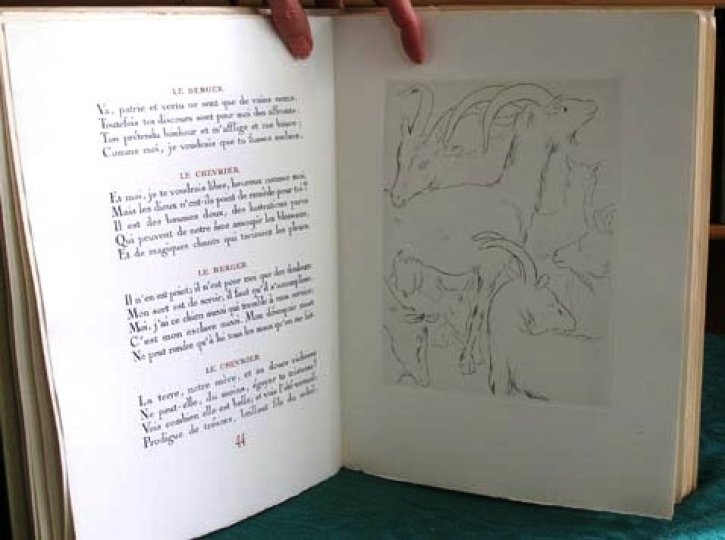 LE BERGER.
Va, patrie et vertu ne sont que de vains noms.
Toutefois tes discours sont pour moi des affronts:
Ton prétendu bonheur et m'afflige et me brave;
Comme moi, je voudrais que tu fusses esclave.
LE CHEVRIER.
Et moi, je te voudrais libre, heureux comme moi.
Mais les dieux n'ont-ils point de remède pour toi?
Il est des baumes doux, des lustrations pures
Qui peuvent de notre âme assoupir les blessures,
Et de magiques chants qui tarissent les pleurs.
LE BERGER.
Il n'en est point; il n'est pour moi que des douleurs.
Mon sort est de servir, il faut qu'il s'accomplisse.
Moi, j'ai ce chien aussi qui tremble à mon service;
C'est mon esclave aussi. Mon désespoir muet
Ne peut rendre qu'à lui tous les maux qu'on me fait.
LE CHEVRIER.
La terre, notre mère, et sa douce richesse
Ne peut-elle, du moins, égayer ta tristesse?
Vois combien elle est belle; et vois l'été vermeil,
Prodigue de trésors, brillant fils du soleil,
44